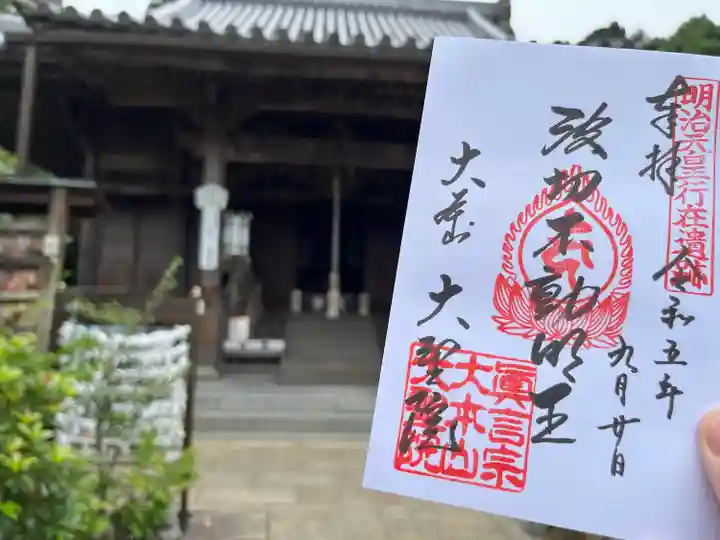 明治天皇行在遺跡
奉拝
令和五年
九月廿日
波切不動明王
大本山
大聖院
眞言宗
大本山
大聖院